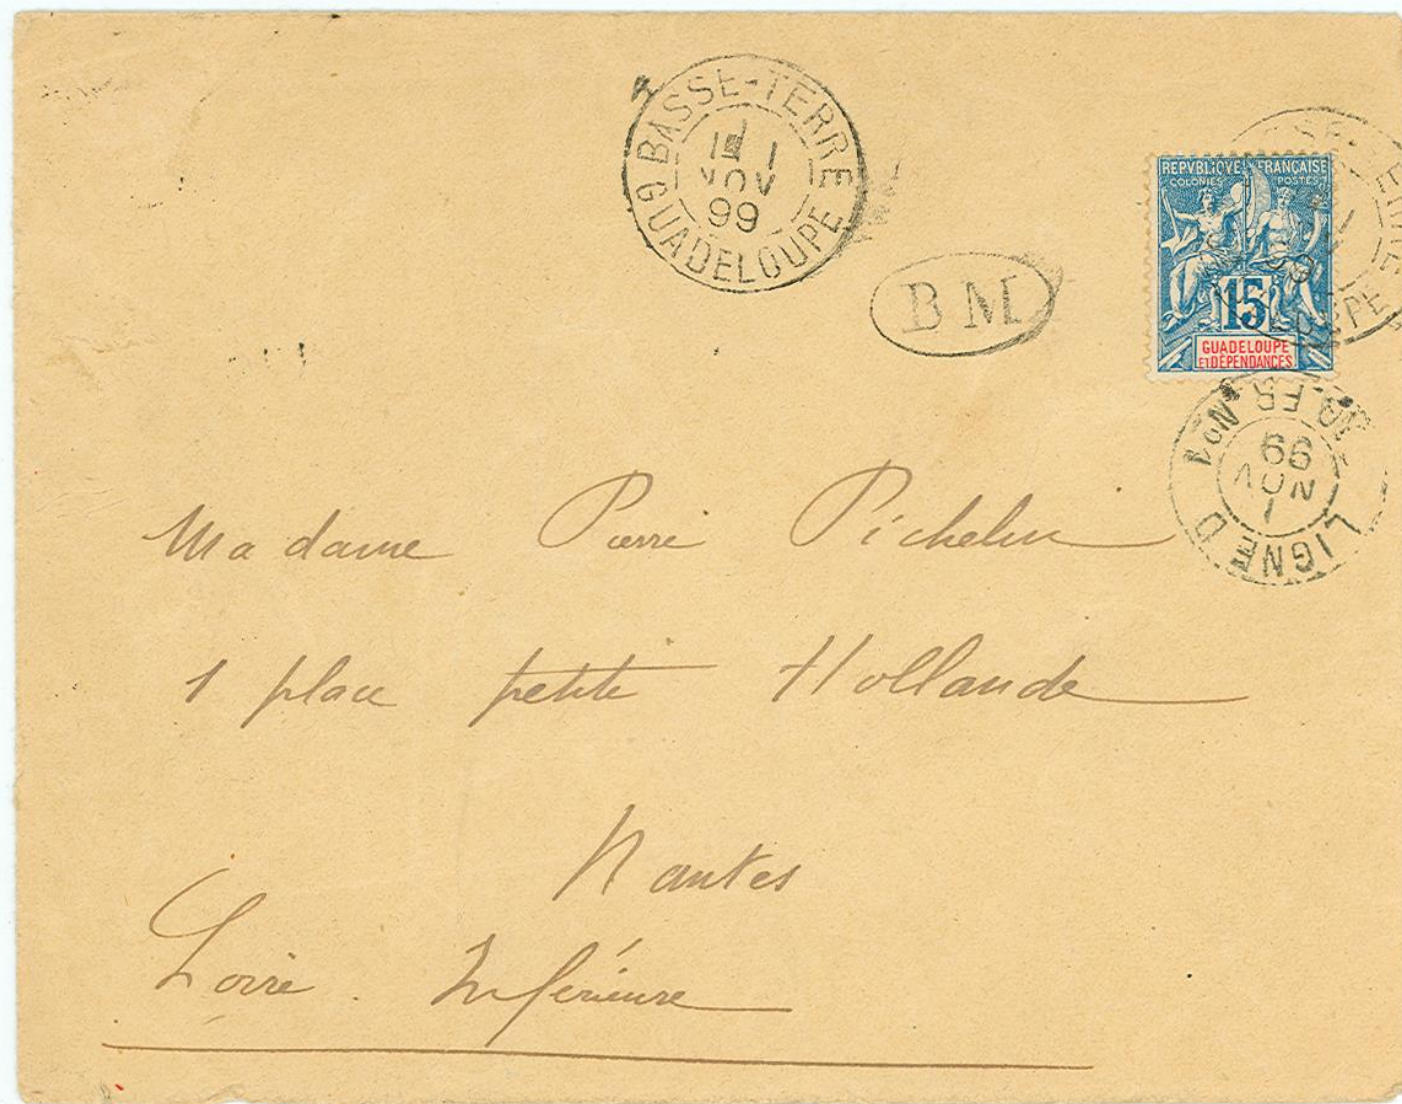 BASSE-TERRE
1
NOV
99
GUADELOUPE
B M
REPVBLIQVE FRANÇAISE
COLONIES POSTES
15
GUADELOUPE
ET DÉPENDANCES
LIGNE D FR. Nº1
1
NOV
99
Madame Pierre Pichelin
1 place petite Hollande
Nantes
Loire. Inférieure